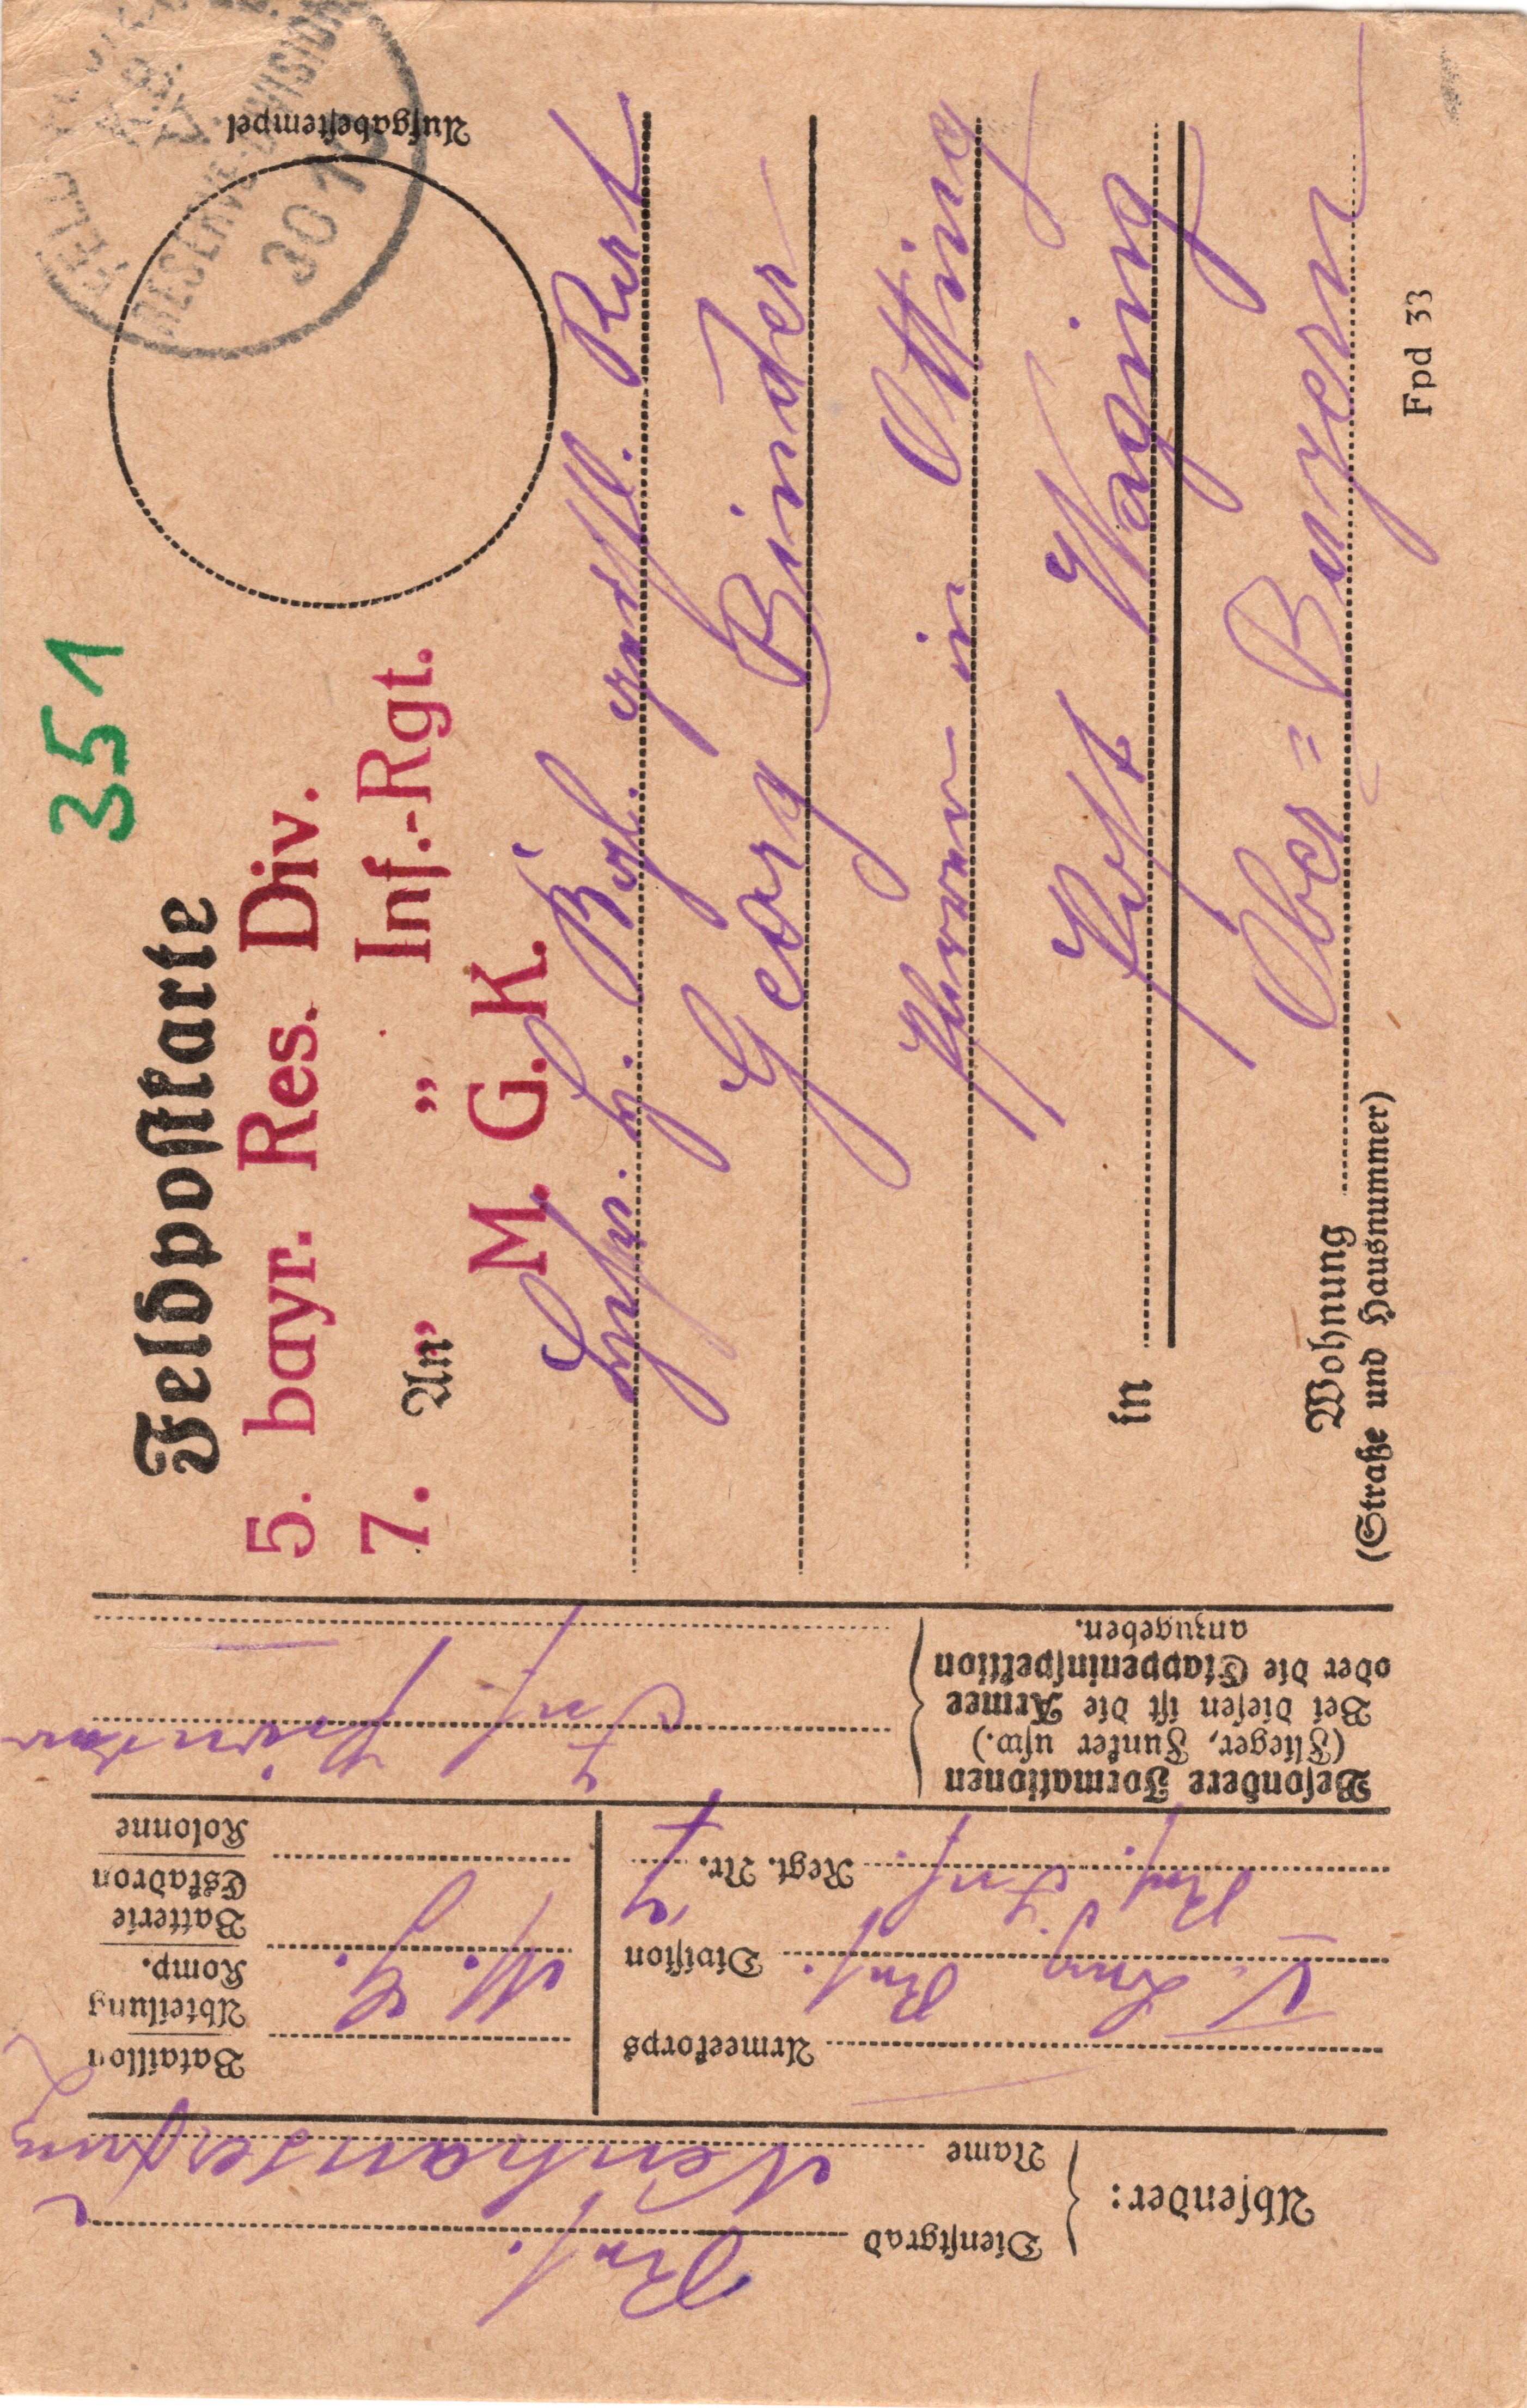 351
Feldpostkarte
5. bayr. Res. Div.
7. „ Inf.-Rgt.
„ M. G. K.
An
Aufgabestempel
RESERVE-DIVISION
30
geistl. Rat
Georg Binder
Pfarrer in Otting
in Post Waging
Wohnung Ober=Bayern
(Straße und Hausnummer)
Fpd 33
Absender:
Dienstgrad Res.
Name
Armeekorps
V. bay Res. Division
Res. Inf. Regt. Nr. 7
Bataillon
Abteilung
Komp.
Batterie
Eskadron
Kolonne
M. G.
Besondere Formationen
(Flieger, Funker usw.)
Bei diesen ist die Armee
oder die Etappeninspektion
anzugeben.